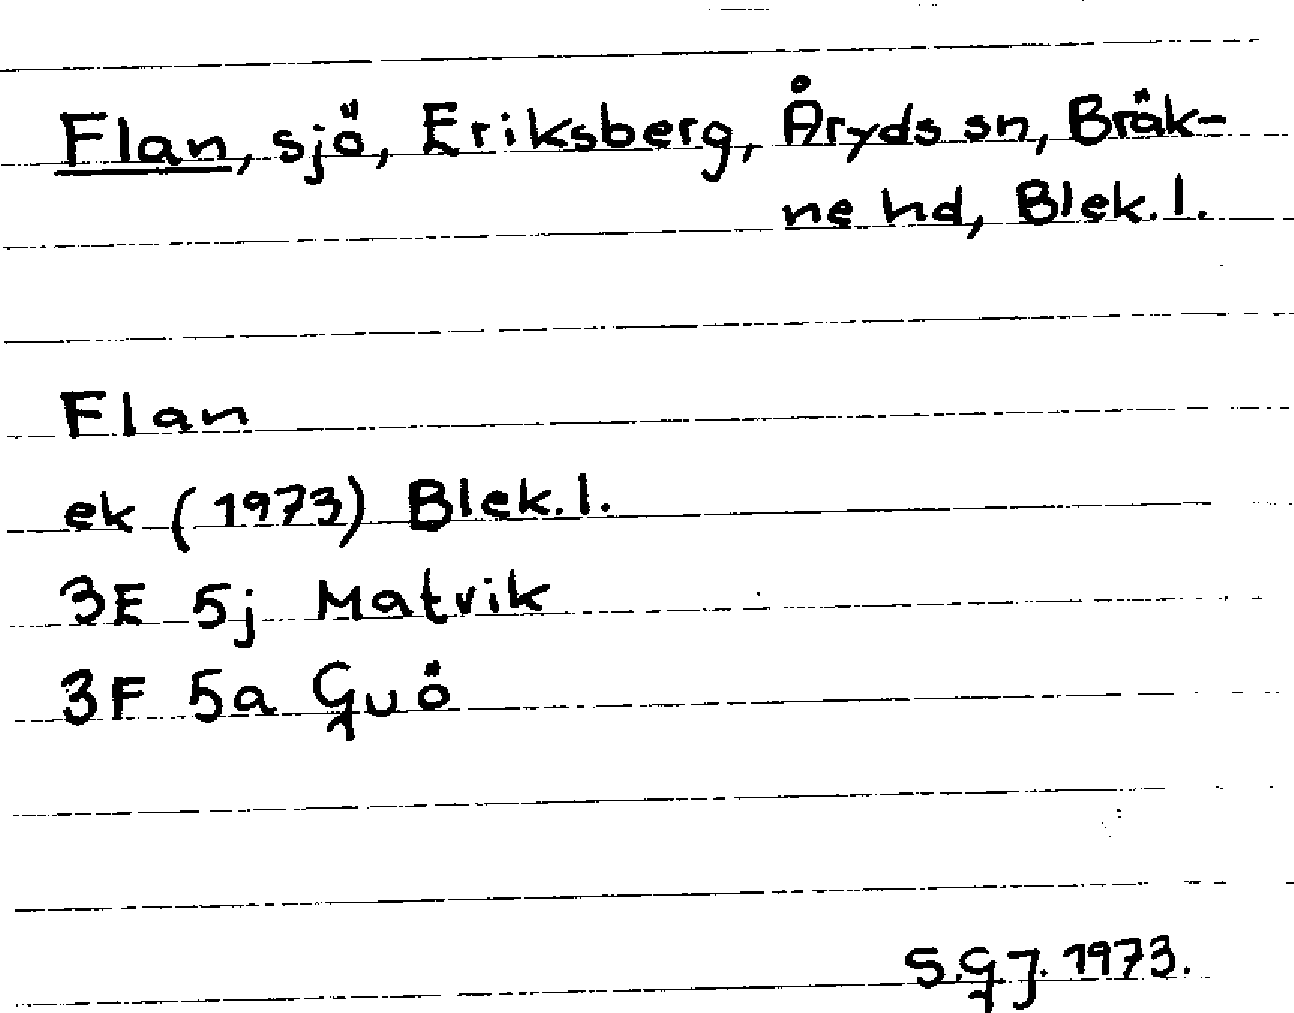 Flan, sjö, Eriksberg, Åryds sn, Bräk-
ne hd, Blek. l.
Flan
ek (1973) Blek. l.
3E 5j Matvik
3F 5a Guö
S.G.J. 1973.